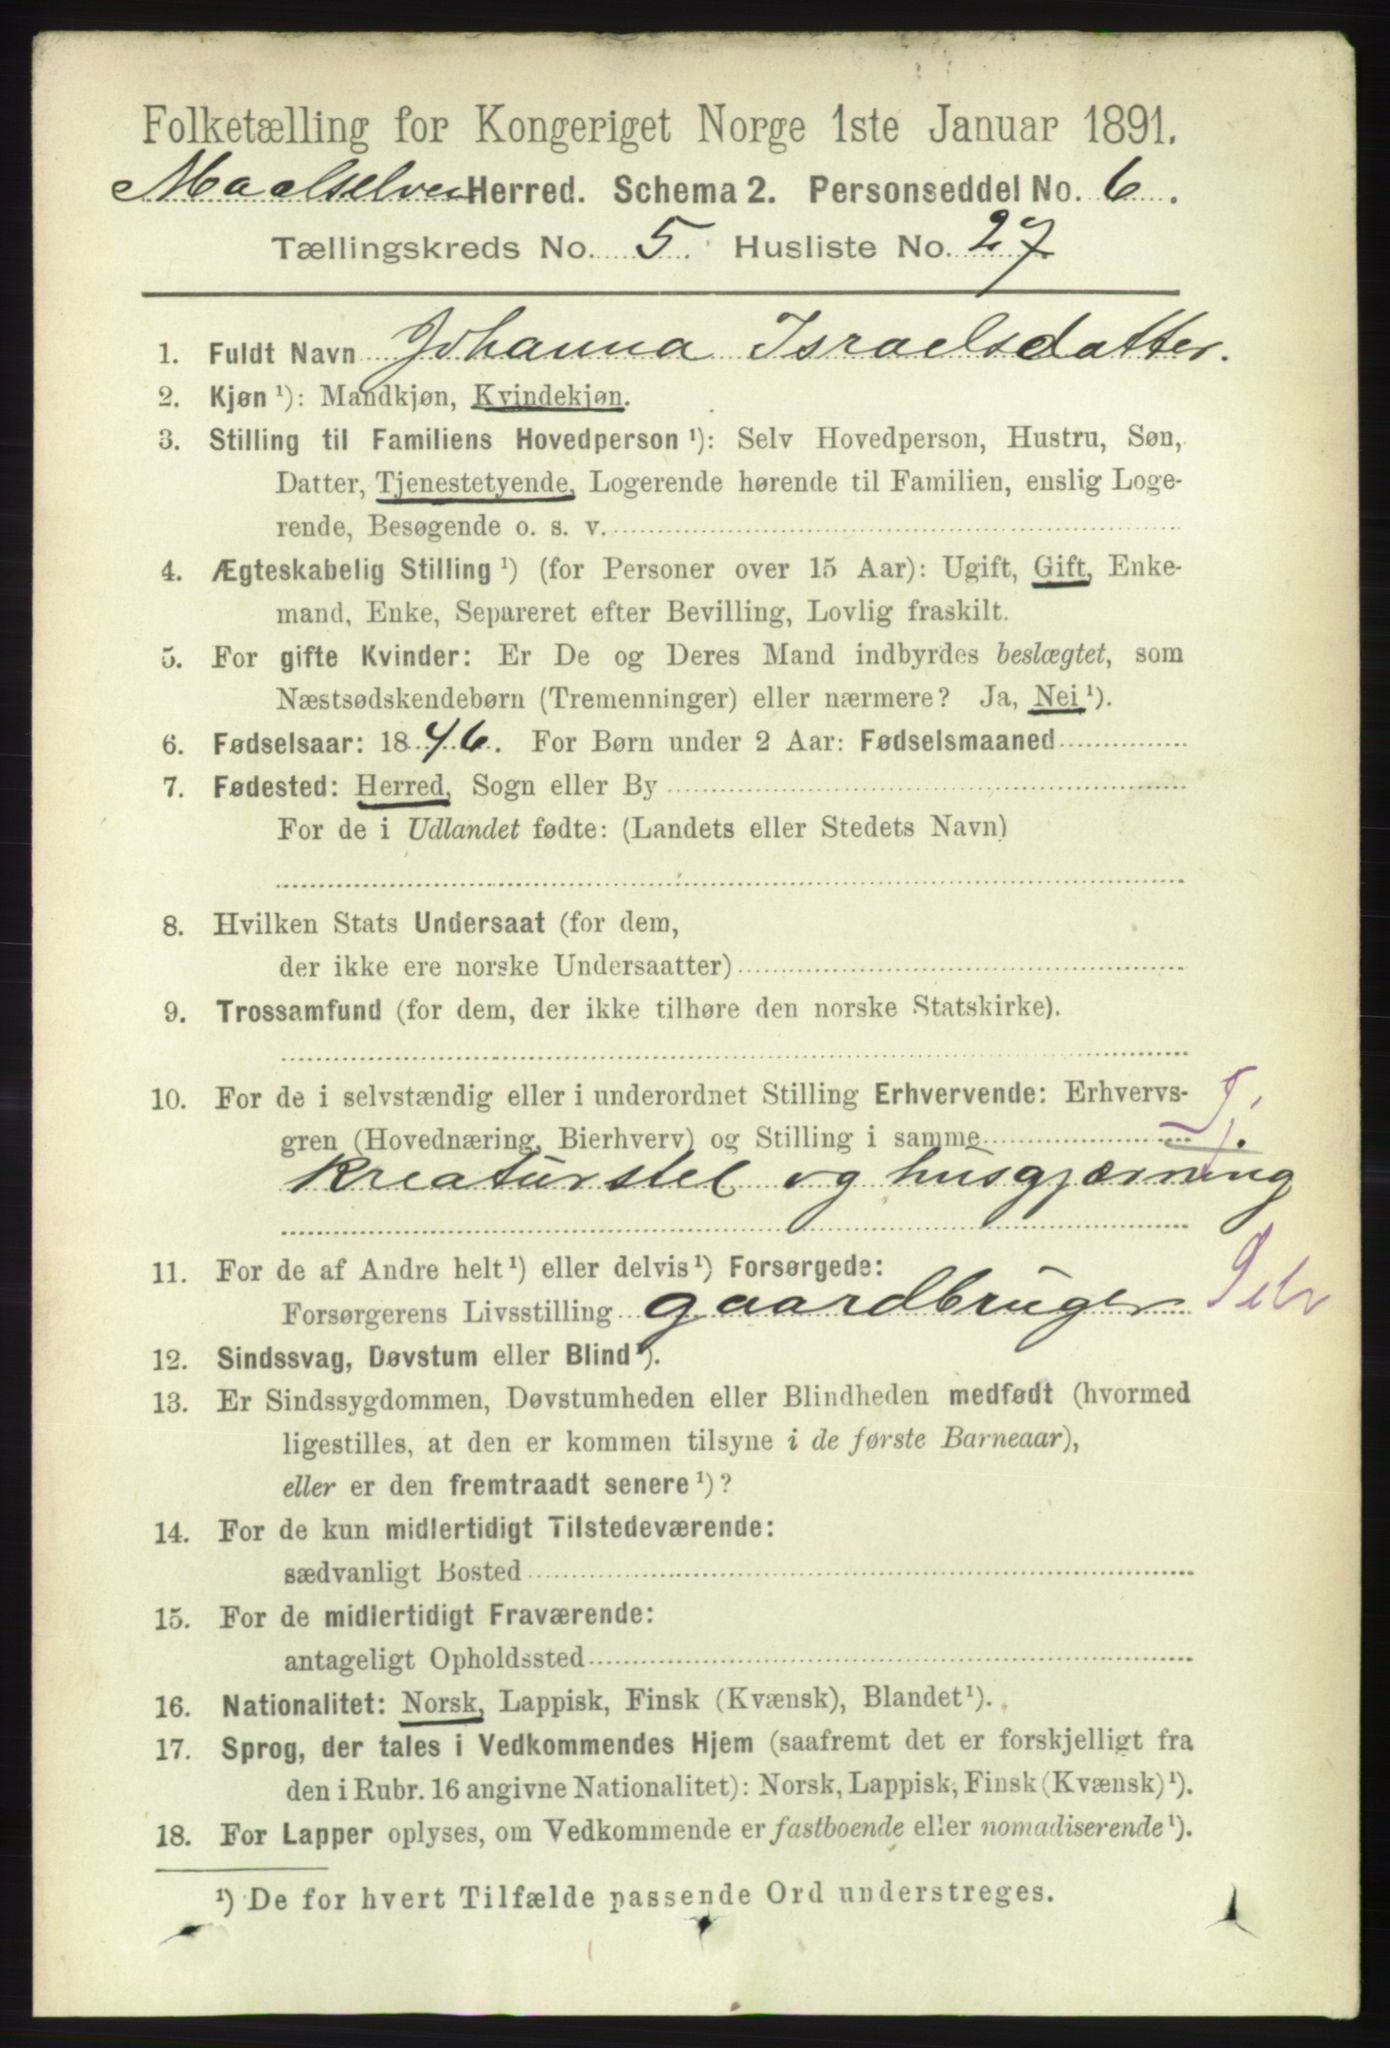 Folketælling for Kongeriget Norge 1ste Januar 1891.
Maalselven Herred. Schema 2. Personseddel No. 6.
Tællingskreds No. 5. Husliste No. 27
1. Fuldt Navn Johanna Israelsdatter.
2. Kjøn ¹): Mandkjøn, Kvindekjøn.
3. Stilling til Familiens Hovedperson ¹): Selv Hovedperson, Hustru, Søn,
Datter, Tjenestetyende, Logerende hørende til Familien, enslig Loge-
rende, Besøgende o. s. v.
4. Ægteskabelig Stilling ¹) (for Personer over 15 Aar): Ugift, Gift, Enke-
mand, Enke, Separeret efter Bevilling, Lovlig fraskilt.
5. For gifte Kvinder: Er De og Deres Mand indbyrdes beslægtet, som
Næstsødskendebørn (Tremenninger) eller nærmere? Ja, Nei ¹).
6. Fødselsaar: 1846. For Børn under 2 Aar: Fødselsmaaned
7. Fødested: Herred, Sogn eller By
For de i Udlandet fødte: (Landets eller Stedets Navn)
8. Hvilken Stats Undersaat (for dem,
der ikke ere norske Undersaatter)
9. Trossamfund (for dem, der ikke tilhøre den norske Statskirke).
10. For de i selvstændig eller i underordnet Stilling Erhvervende: Erhvervs-
gren (Hovednæring, Bierhverv) og Stilling i samme Tj.
kreaturstel og husgjærning
11. For de af Andre helt ¹) eller delvis ¹) Forsørgede:
Forsørgerens Livsstilling gaardbruger
12. Sindssvag, Døvstum eller Blind ¹).
13. Er Sindssygdommen, Døvstumheden eller Blindheden medfødt (hvormed
ligestilles, at den er kommen tilsyne i de første Barneaar),
eller er den fremtraadt senere ¹)?
14. For de kun midlertidigt Tilstedeværende:
sædvanligt Bosted
15. For de midlertidigt Fraværende:
antageligt Opholdssted
16. Nationalitet: Norsk, Lappisk, Finsk (Kvænsk), Blandet ¹).
17. Sprog, der tales i Vedkommendes Hjem (saafremt det er forskjelligt fra
den i Rubr. 16 angivne Nationalitet): Norsk, Lappisk, Finsk (Kvænsk) ¹).
18. For Lapper oplyses, om Vedkommende er fastboende eller nomadiserende ¹).
¹) De for hvert Tilfælde passende Ord understreges.